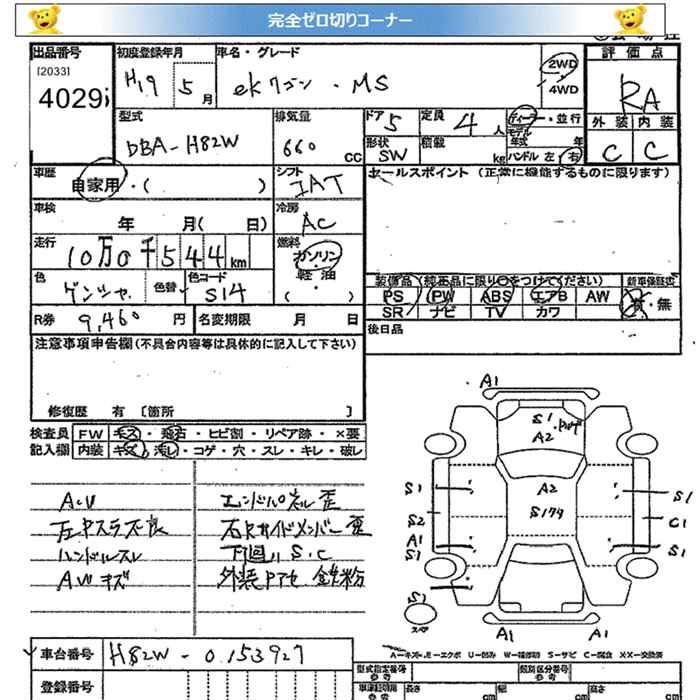 完全ゼロ切りコーナー
出品番号
[2033]
4029
初度登録年月
H19
5
月
車名・グレード
ekワゴン ・ MS
2WD
4WD
評価点
RA
外装 内装
C C
型式
DBA-H82W
排気量
660
CC
ドア
5
定員
4
人
ディーラー・並行
モデル
年式
年
形状
SW
積載
kg
ハンドル 左・右
車歴
自家用・( )
シフト
IAT
セールスポイント (正常に機能するものに限ります)
車検
年 月( 日)
冷房
AC
走行
10万0千544
km
燃料
ガソリン
軽油
( )
色
ゲンシャ
色替
色コード
S14
装備品(純正品に限り○をつけてください)
新車保証書
PS PW ABS エアB AW
SR ナビ TV カワ
有・無
R券
9,460
円
名変期限
月 日
後日品
注意事項申告欄(不具合内容等は具体的に記入して下さい)
修復歴 有 [箇所 ]
検査員 FW キズ・飛石・ヒビ割・リペア跡・×要
記入欄 内装 キズ・汚レ・コゲ・穴・スレ・キレ・破レ
エンドパネル歪
右Rサイドメンバー歪
ハンドルスレ
下廻リS・C
AWキズ
外装Pアセ 鉄粉
A1
S1
A2
A2
S179
S1
S2
A1
S1
S1
C1
S1
S1
スペア
A1
A1
A-キズ、E-エクボ U-凹み W-補修跡 S-サビ C-腐食 XX-交換済
車台番号
H82W-0153927
登録番号
型式指定番号
参考
類別区分番号
参考
車庫証明用
参考
長さ
cm
幅
cm
高さ
cm